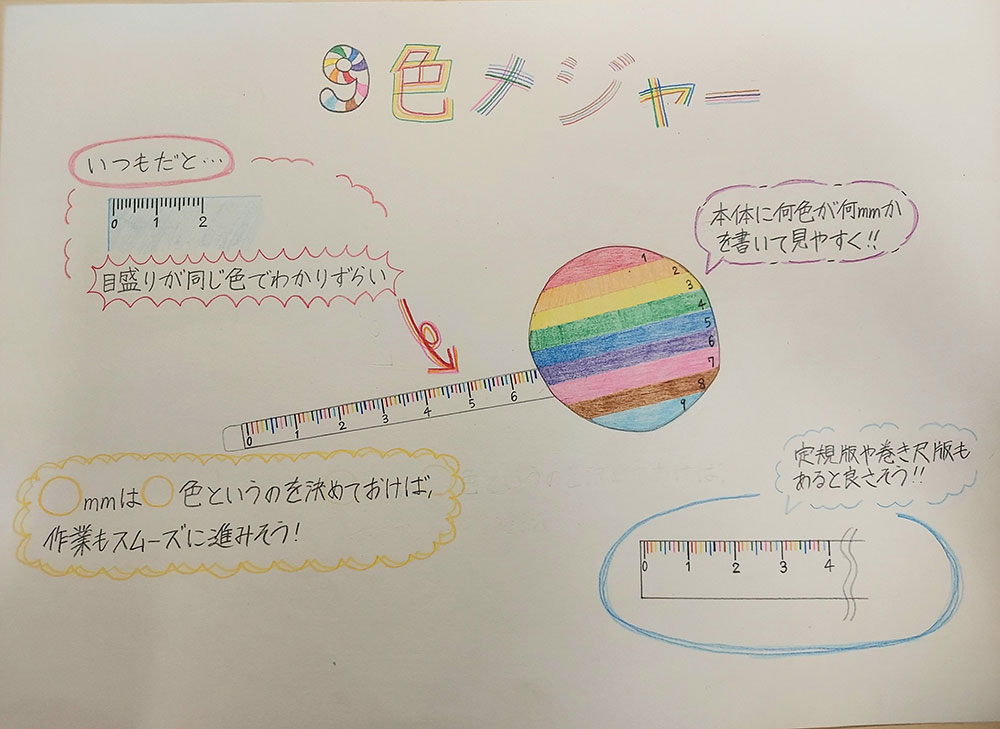 9色メジャー
いつもだと…
0 1 2
目盛りが同じ色でわかりずらい
本体に何色が何mmか
を書いて見やすく!!
1
2
3
4
5
6
7
8
9
0 1 2 3 4 5 6
○mmは○色というのを決めておけば,
作業もスムーズに進みそう!
定規版や巻き尺版も
あると良さそう!!
0 1 2 3 4